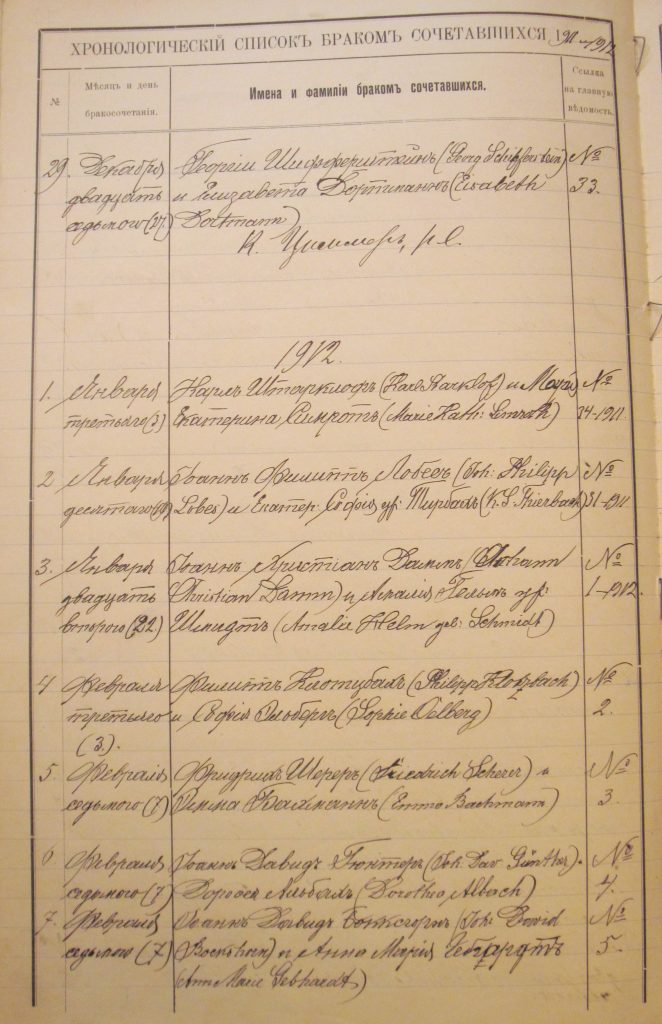 ХРОНОЛОГИЧЕСКІЙ СПИСОКЪ БРАКОМЪ СОЧЕТАВШИХСЯ 1911-1912
№
Мѣсяцъ и день
бракосочетанія.
Имена и фамиліи бракомъ сочетавшихся.
Ссылка
на главную
вѣдомость.
29. Декабря Георгіи Шифферштейнъ (Georg Schifferstein) №
двадцать и Елизавета Дортманнъ (Elisabeth 33.
седьмого (27) Dortmann)
К. Циммеръ, p. l.
1912.
1. Января Карлъ Штарклофъ (Karl Starklof) и Марія №
третьяго (3) Екатерина (Marie Kath: 34-1911
2 Января Іоаннъ Филиппъ Лобесъ (Joh: Philipp №
десятаго (10) Lobes) и Екатер: Софія ур: Тирбахъ (K. S. Thierbach) 31-1911
3. Января Іоаннъ Христіанъ Даммъ (Johann №
двадцать Christian Damm) и Амалія Гельмъ ур: 1-1912.
второго (22) Шмидтъ (Amalie Helm geb: Schmidt)
4 Февраля Филиппъ Клотцбахъ (Philipp Klotzbach) №
третьяго и Софія Эльбергъ (Sophie Oelberg) 2.
(3).
5. Февраля Фридрихъ Шереръ (Friedrich Scherer) и №
седьмого (7) Эмма Бахманнъ (Emma Bachmann) 3.
6 Февраля Іоаннъ Давидъ Гюнтеръ (Joh. Dav. Günther). №
седьмого (7) Доротея Альбахъ (Dorothea Albach) 4.
7. Февраля Іоаннъ Давидъ Боксгорнъ (Joh: David №
седьмого (7) Bockshorn) и Анна Марія Гебгардтъ 5.
(Ann Marie Gebhardt)